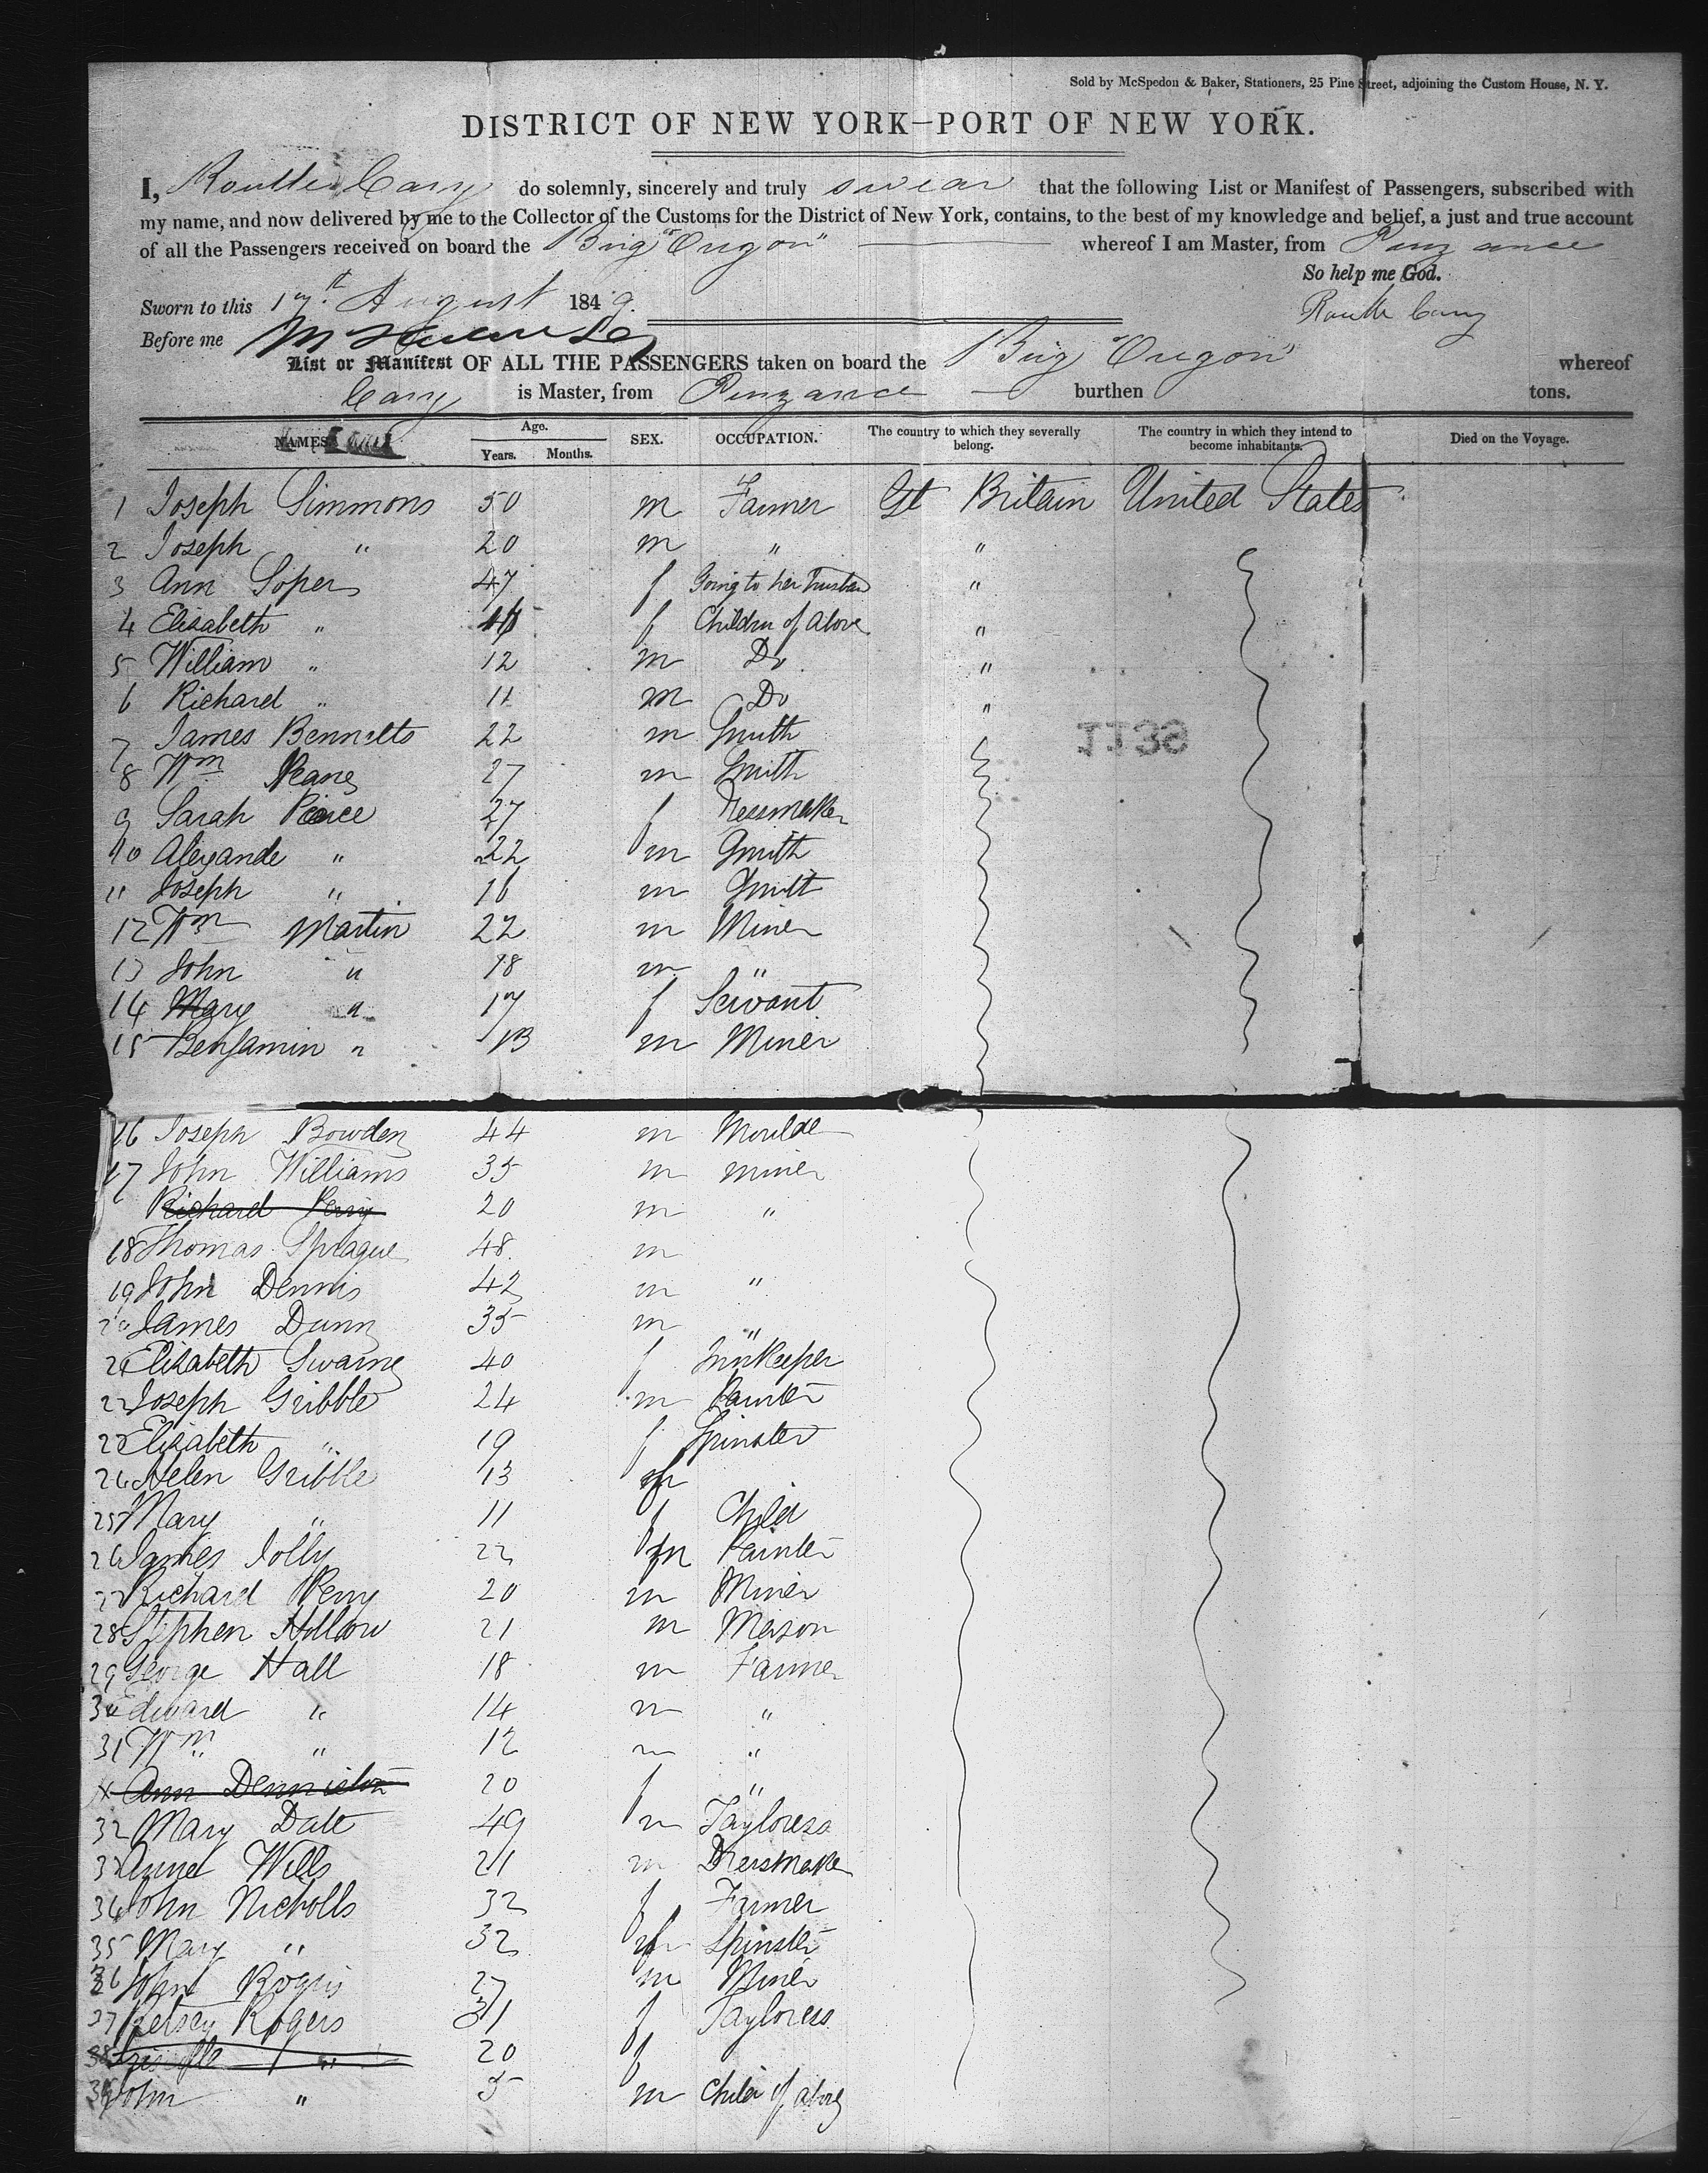 Sold by McSpedon & Baker, Stationers, 25 Pine Street, adjoining the Custom House, N. Y.
DISTRICT OF NEW YORK—PORT OF NEW YORK.
I, Cary do solemnly, sincerely and truly swear that the following List or Manifest of Passengers, subscribed with
my name, and now delivered by me to the Collector of the Customs for the District of New York, contains, to the best of my knowledge and belief, a just and true account
of all the Passengers received on board the Brig "Oregon" whereof I am Master, from Penzance
So help me God.
Sworn to this 17th August 1849. Cary
Before me
List or Manifest OF ALL THE PASSENGERS taken on board the Brig "Oregon" whereof
Cary is Master, from Penzance burthen tons.
NAMES. Age. Years. Months. SEX. OCCUPATION. The country to which they severally belong. The country in which they intend to become inhabitants. Died on the Voyage.
1 Joseph Simmons 50 m Farmer Gt Britain United States
2 Joseph " 20 m " "
3 Ann Soper 47 f Going to her husban "
4 Elizabeth " f Children of Above "
5 William " 12 m Do "
6 Richard " 11 m Do "
7 James Bennetts 22 m Smith
8 Wm 27 m Smith
9 Sarah Pearce 27 f Dressmaker
10 Alexande " 22 m Smith
11 Joseph " 16 m Smith
12 Wm Martin 22 m Miner
13 John " 18 m "
14 Mary " 17 f Servant
15 Benjamin " 13 m Miner
16 Joseph Bowden 44 m Moulde
17 John Williams 35 m miner
Richard Perry 20 m "
18 Thomas Sprague 48 m
19 John Dennis 42 m "
20 James Dunn 35 m "
21 Elizabeth Swaine 40 f Innkeeper
22 Joseph Gribble 24 m Painter
23 Elizabeth " 19 f Spinster
24 Helen Gribble 13 f
25 Mary " 11 f Child
26 James Jolly 22 m Painter
27 Richard Perry 20 m Miner
28 Stephen Hollow 21 m Mason
29 George Hall 18 m Farmer
30 Edward " 14 m "
31 Wm " 12 m "
x Ann Denniston 20 f "
32 Mary Date 49 m Tayloress
33 Wills 21 m Dressmaker
34 John Nicholls 32 f Farmer
35 Mary " 32 f Spinster
36 John Rogers 27 m Miner
37 Betsey Rogers 31 f Tayloress
38 " 20 f
39 John " 5 m Child of above
1139